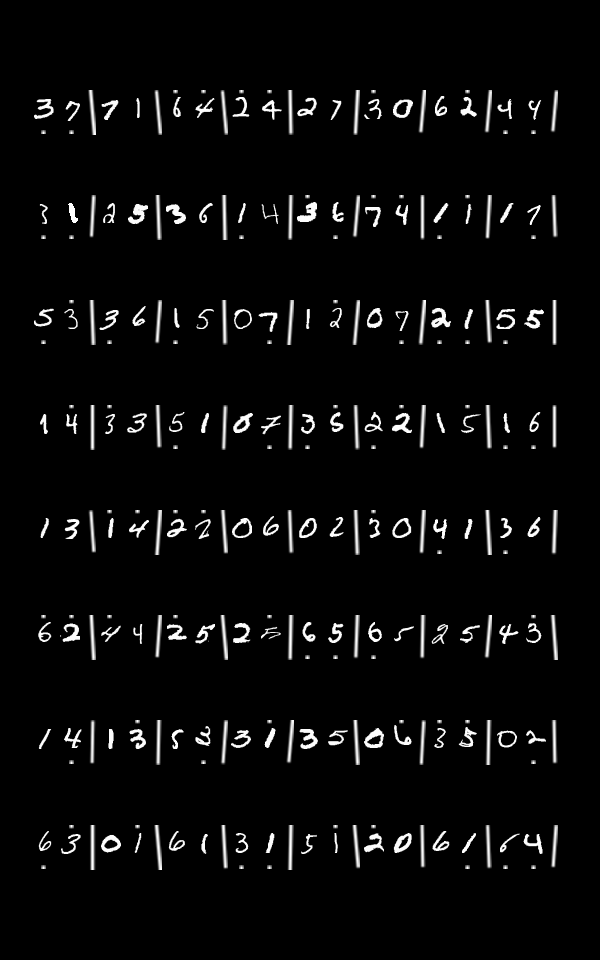 3̣ 7̣ | 7 1 | 6̇ 4̇ | 2̇ 4̇ | 2 7 | 3̇ 0 | 6 2̇ | 4̣ 4̣ |
3̣ 1̣ | 2 5 | 3 6 | 1̣ 4 | 3̇ 6̣ | 7̇ 4̇ | 1̣ 1̇ | 1 7̣ |
5̣ 3̇ | 3̣ 6 | 1̣ 5 | 0 7̣ | 1 2̇ | 0 7̣ | 2̣ 1̣ | 5̣ 5 |
1 4̇ | 3̇ 3 | 5̣ 1 | 0 7̣ | 3̣ 6̇ | 2̣ 2̇ | 1 5̇ | 1̣ 6 |
1 3 | 1̇ 4̇ | 2̇ 2̇ | 0 6 | 0 2 | 3̇ 0 | 4̣ 1 | 3̣ 6 |
6̇ 2̇ | 4̇ 4 | 2̇ 5 | 2 5̇ | 6̣ 5̣ | 6̣ 5 | 2 5 | 4 3̇ |
1 4̣ | 1 3̇ | 5 3̣ | 3 1̇ | 3 5 | 0 6̇ | 3 5̇ | 0 2̣ |
6̣ 3 | 0 1̇ | 6 1 | 3̣ 1̣ | 5 1̇ | 2̇ 0 | 6 1̣ | 6̣ 4̣ |